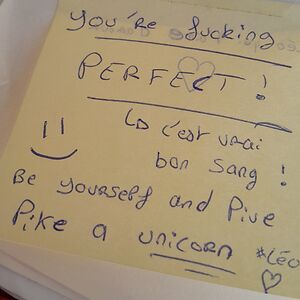 you're fucking
PERFECT !
↳ c'est vrai
bon sang !
Be yourself and live
like a unicorn
*Léo